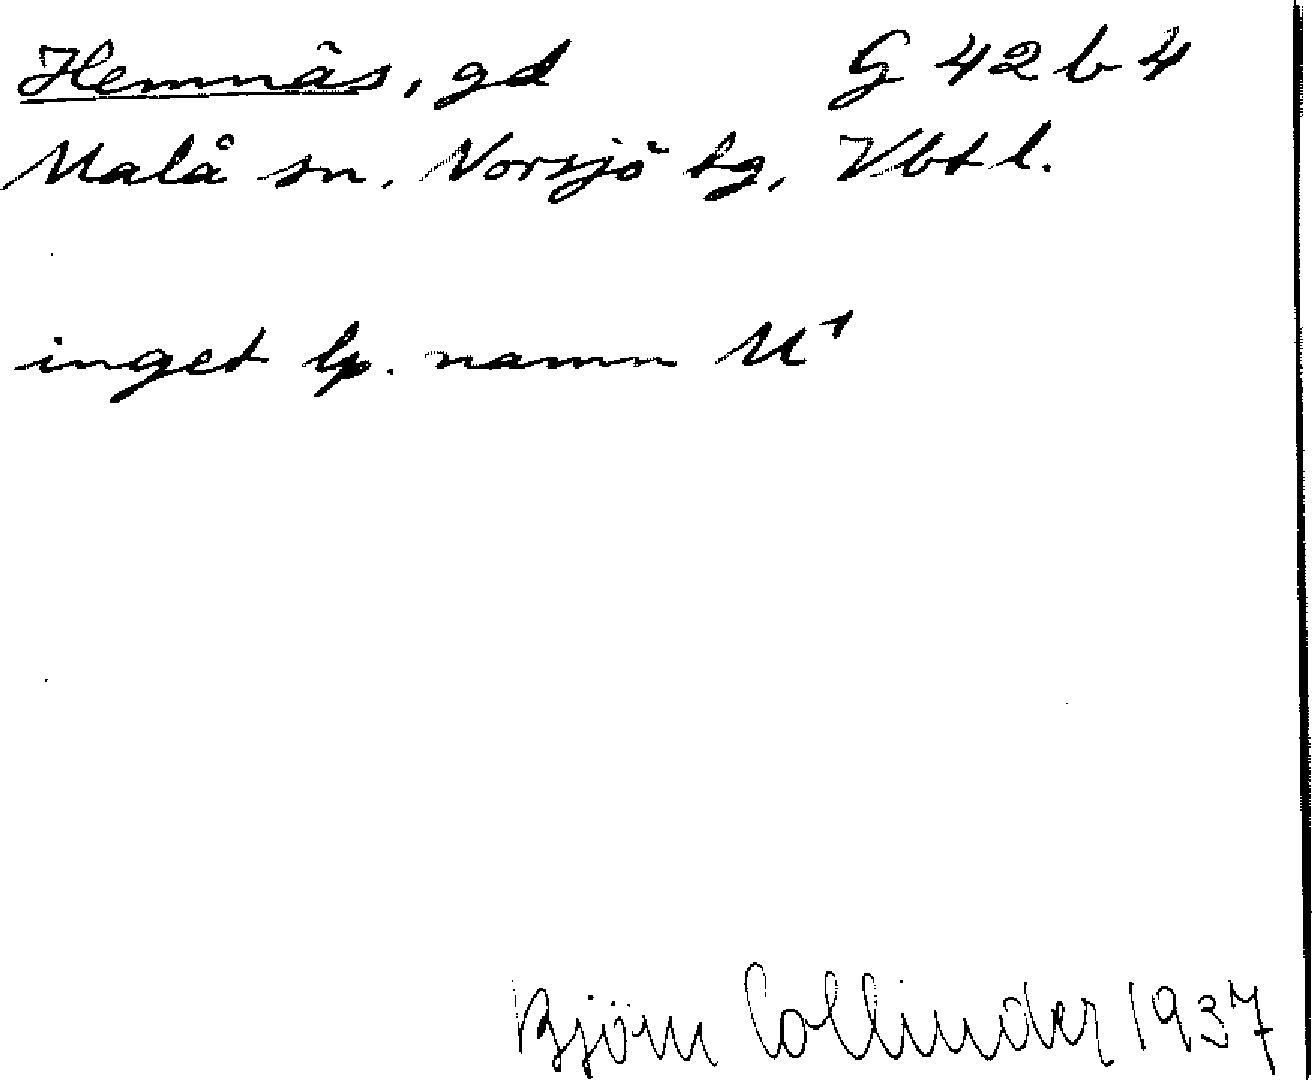 Hemnäs, gd G 42 b 4
Malå sn, Norsjö tg, Vbtl.
inget lp. namn M¹
Björn Collinder 1937